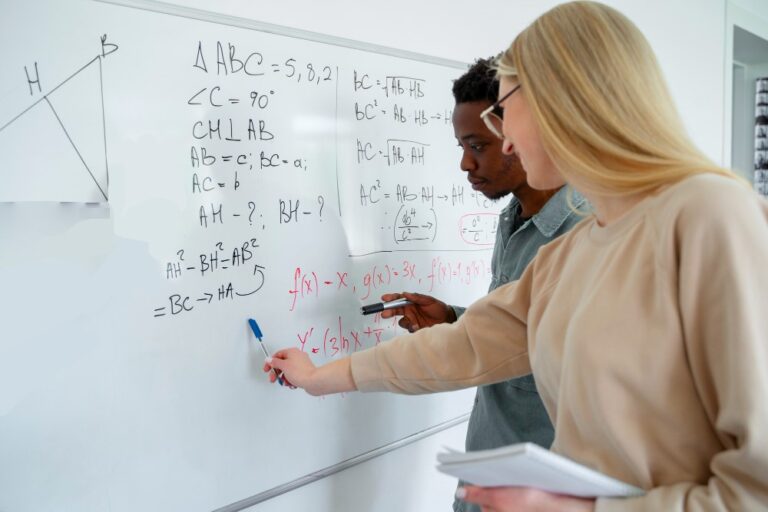 H
B
△ABC = 5, 8, 2
∠C = 90°
CH⊥AB
AB = c; BC = a;
AC = b
AH - ?; BH - ?
AH² - BH² = AB²
= BC → HA
BC = √AB·HB
BC² = AB·HB →
AC = √AB·AH
AC² = AB·AH →
f(x) = x, g(x) = 3x, f'(x) = 1, g'(x)
y' = (3 ln x +